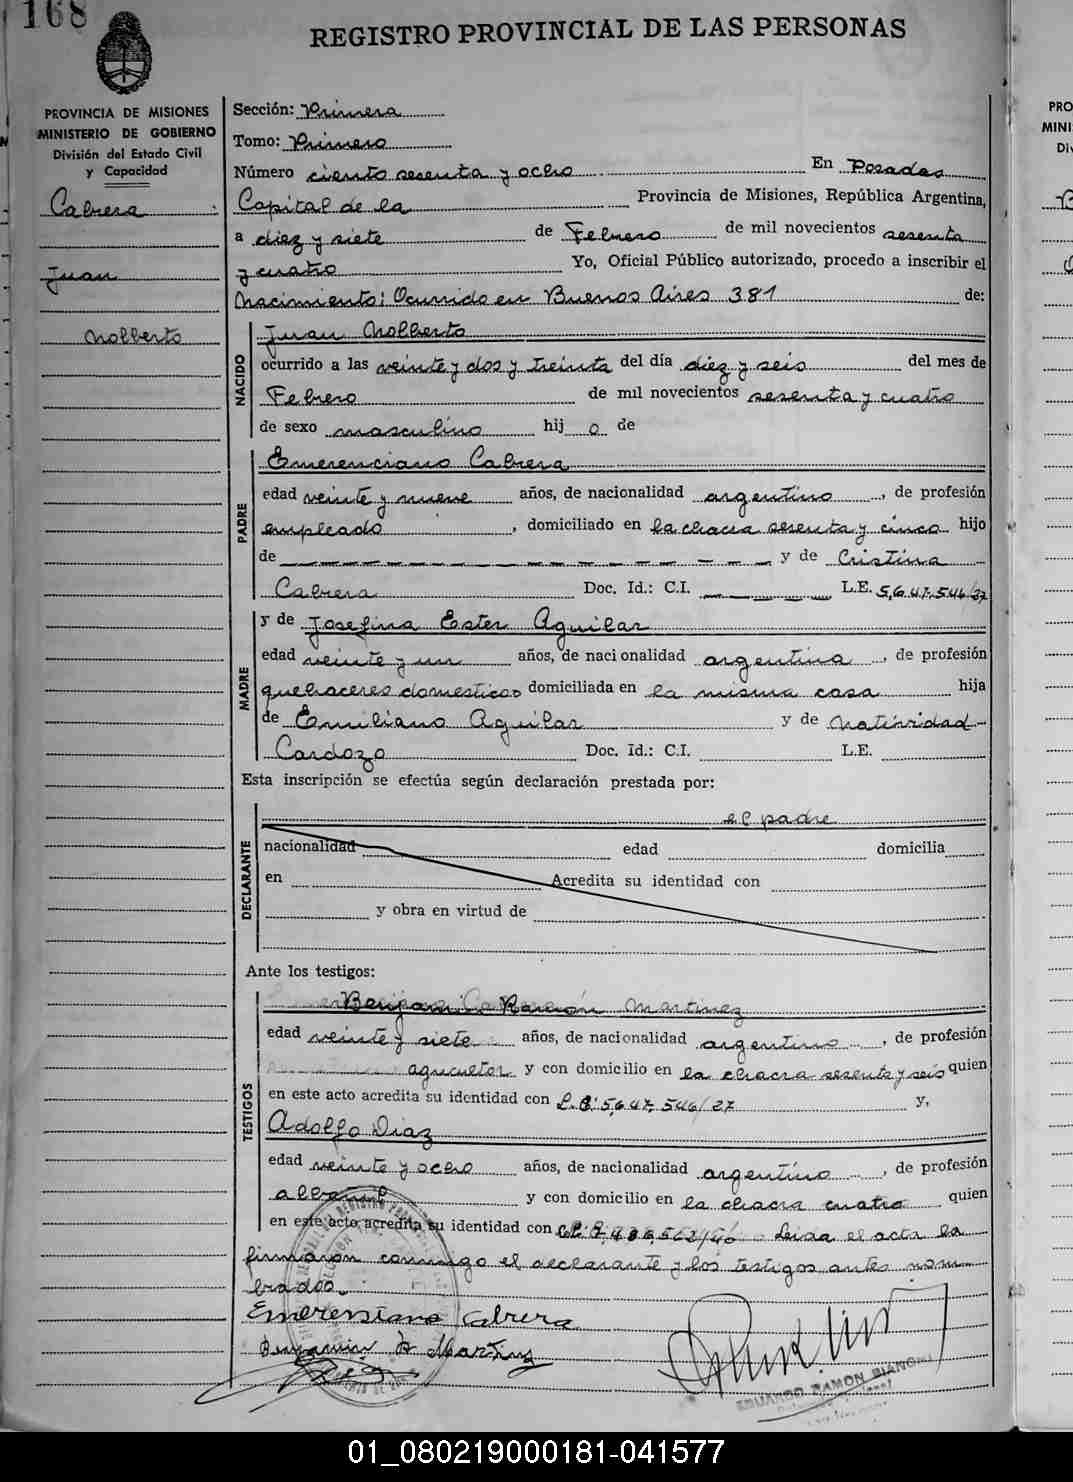 168
REGISTRO PROVINCIAL DE LAS PERSONAS
PROVINCIA DE MISIONES
MINISTERIO DE GOBIERNO
División del Estado Civil
y Capacidad
Cabrera
Juan
Nolberto
Sección: Primera
Tomo: Primero
Número ciento sesenta y ocho En Posadas
Capital de la Provincia de Misiones, República Argentina,
a diez y siete de Febrero de mil novecientos sesenta
y cuatro Yo, Oficial Público autorizado, procedo a inscribir el
Nacimiento: Ocurrido en Buenos Aires 381 de:
NACIDO
Juan Nolberto
ocurrido a las veinte y dos y treinta del día diez y seis del mes de
Febrero de mil novecientos sesenta y cuatro
de sexo masculino hij o de
PADRE
Emerenciano Cabrera
edad veinte y nueve años, de nacionalidad argentino, de profesión
empleado, domiciliado en la chacra sesenta y cinco hijo
de y de Cristina
Cabrera Doc. Id.: C.I. L.E. 5,647,546/37
MADRE
y de Josefina Ester Aguilar
edad veinte y un años, de nacionalidad argentina, de profesión
quehaceres domesticos domiciliada en la misma casa hija
de Emiliano Aguilar y de Natividad
Cardozo Doc. Id.: C.I. L.E.
Esta inscripción se efectúa según declaración prestada por:
DECLARANTE
el padre
nacionalidad edad domicilia
en Acredita su identidad con
y obra en virtud de
Ante los testigos:
TESTIGOS
Ramón Martinez
edad veinte y siete años, de nacionalidad argentino, de profesión
agricultor y con domicilio en la chacra sesenta y seis quien
en este acto acredita su identidad con 5,647,546/27 y,
Adolfo Diaz
edad veinte y ocho años, de nacionalidad argentino, de profesión
albañil y con domicilio en la chacra cuatro quien
en este acto acredita su identidad con Leida el acta la
firmaron conmigo el declarante y los testigos antes nom
brados.
Emerensiano Cabrera
Benjamin R Martinez
EDUARDO RAMON BIANCHI
01_080219000181-041577